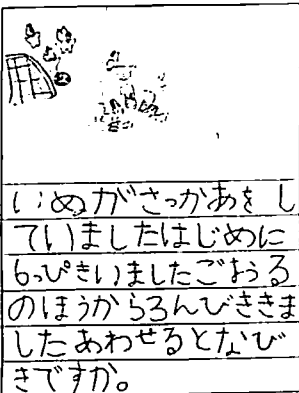 いぬがさっかあをし
ていましたはじめに
6っぴきいましたごおうる
のほうから3んびききま
したあわせるとなび
きですか。